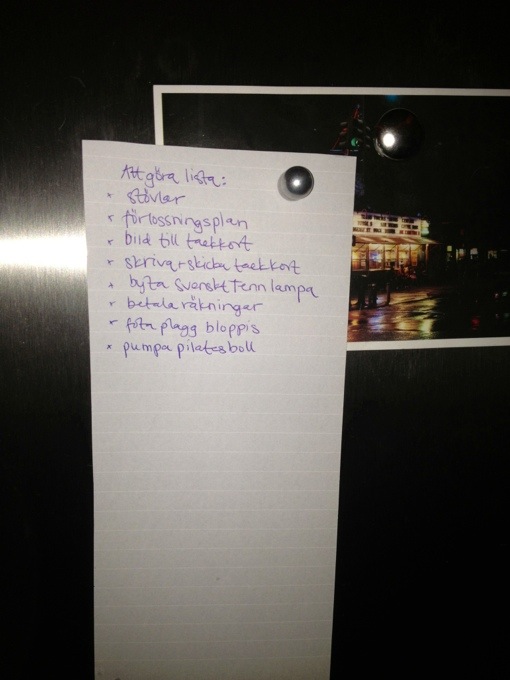 Att göra lista:
× stövlar
× förlossningsplan
× bild till tackkort
× skriva + skicka tackkort
× byta Svenskt Tenn lampa
× betala räkningar
× fota plagg bloppis
× pumpa pilatesboll